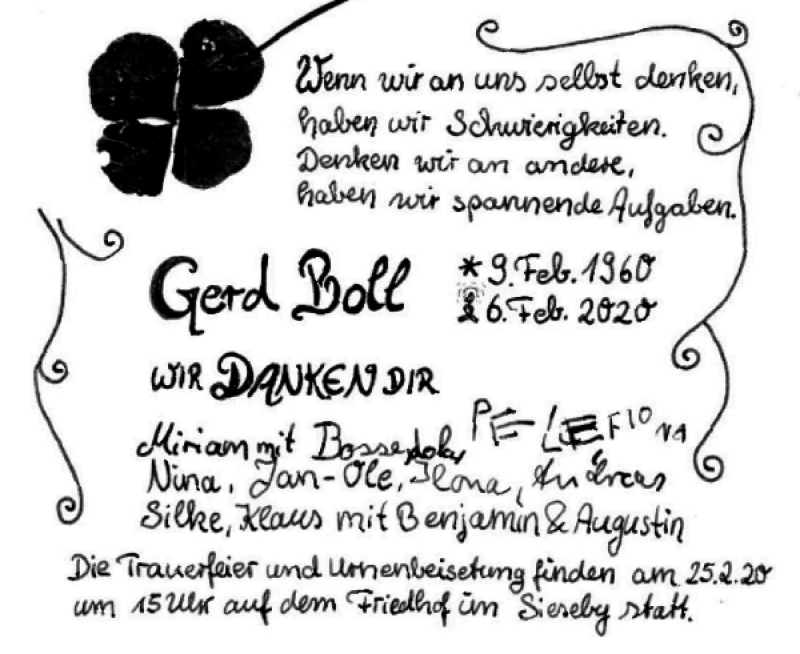 Wenn wir an uns selbst denken,
haben wir Schwierigkeiten.
Denken wir an andere,
haben wir spannende Aufgaben.
Gerd Boll
* 9. Feb. 1960
6. Feb. 2020
WIR DANKEN DIR
Miriam mit Bosse, PELE FIONA
Nina, Jan-Ole, Ilona, Andreas
Silke, Klaus mit Benjamin & Augustin
Die Trauerfeier und Urnenbeisetung finden am 25.2.20
um 15 Uhr auf dem Friedhof in Sieseby statt.